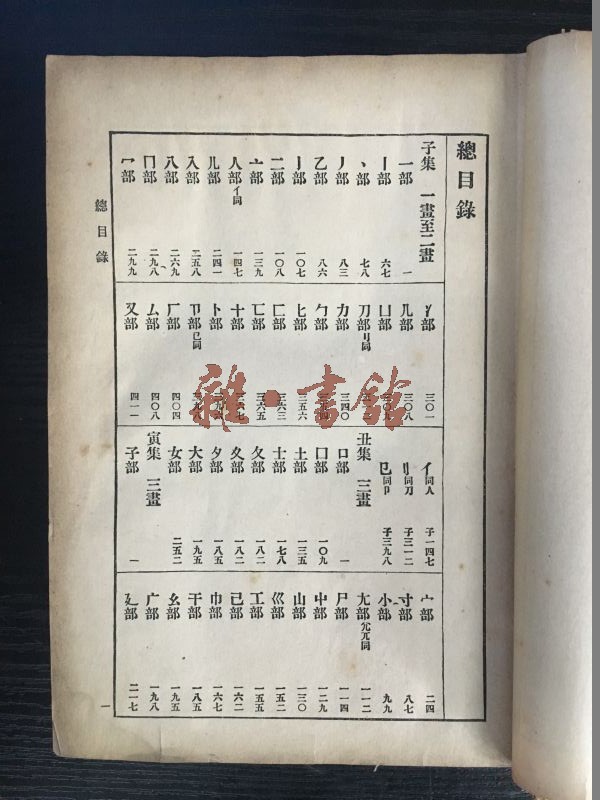 總目錄
子集 一畫至二畫
一部 一
丨部 六七
丶部 七八
丿部 八三
乙部 八六
亅部 一〇七
二部 一〇八
亠部 一三九
人部 亻同 一四七
儿部 二四一
入部 二五八
八部 二六九
冂部 二九八
冖部 二九九
冫部 三〇一
几部 三〇八
凵部 三〇九
刀部 刂同
力部 三四〇
勹部
匕部 三五六
匚部 三六三
匸部 三六五
十部 三六七
卜部
卩部 㔾同 三九八
厂部 四〇四
厶部 四〇八
又部 四一一
亻同人 子一四七
刂同刀 子三一二
㔾同卩 子三九八
丑集 三畫
口部 一
囗部 一〇九
土部 一三五
士部 一七八
夂部 一八二
夊部 一八二
夕部 一八五
大部 一九五
女部 二五二
寅集 三畫
子部 一
宀部 二四
寸部 八七
小部 九九
尢部 尣兀同 一一二
尸部 一一四
屮部 一二九
山部 一三〇
巛部 一五二
工部 一五五
己部 一六二
巾部 一六七
干部 一八五
幺部 一九五
广部 一九八
廴部 二一七
總目錄
一
雜·書館